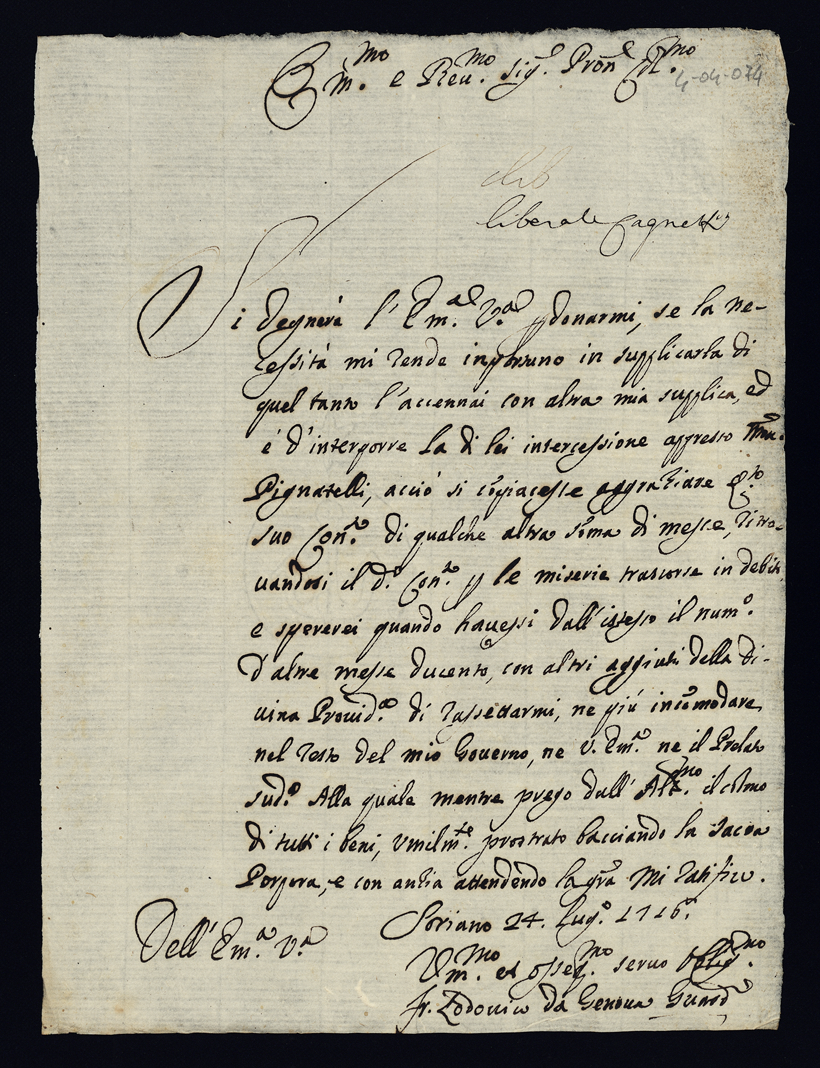 Em.mo e Reu.mo Sig.e Pron.e Col.mo
4-04-074
liberale
Si degnerà l'Em.a V.a donarmi, se la ne-
cessità mi rende inportuno in supplicarla di
quel tanto l'accennai con altra mia supplica, ed
é d'interporre la di lei intercessione appresso
Pignatelli, acciò si cōpiacesse aggratiare q.sto
suo Con.to di qualche altra sōma di messe, ritro-
uandosi il d.o Con.to p le miserie trascorse in debiti
e spererei quando hauessi dall'istesso il num.o
d'altre messe ducento, con altri aggiuti della Di-
uina Prouid.a di rassettarmi, ne più incōmodare
nel resto del mio Gouerno, ne V. Em.a ne il Prelato
sud.o Alla quale mentre prego dall'Alt.mo il colmo
di tutti i beni, vmilm.te prostrato bacciando la Sacra
Porpora, e con antia attendendo la gra mi ratifico.
Soriano 24. Lug.o 1716.
Dell'Em.a V.a
Vm.mo et osseq.mo seruo oblig.mo
fr. Lodouico da Genoua Guard.o